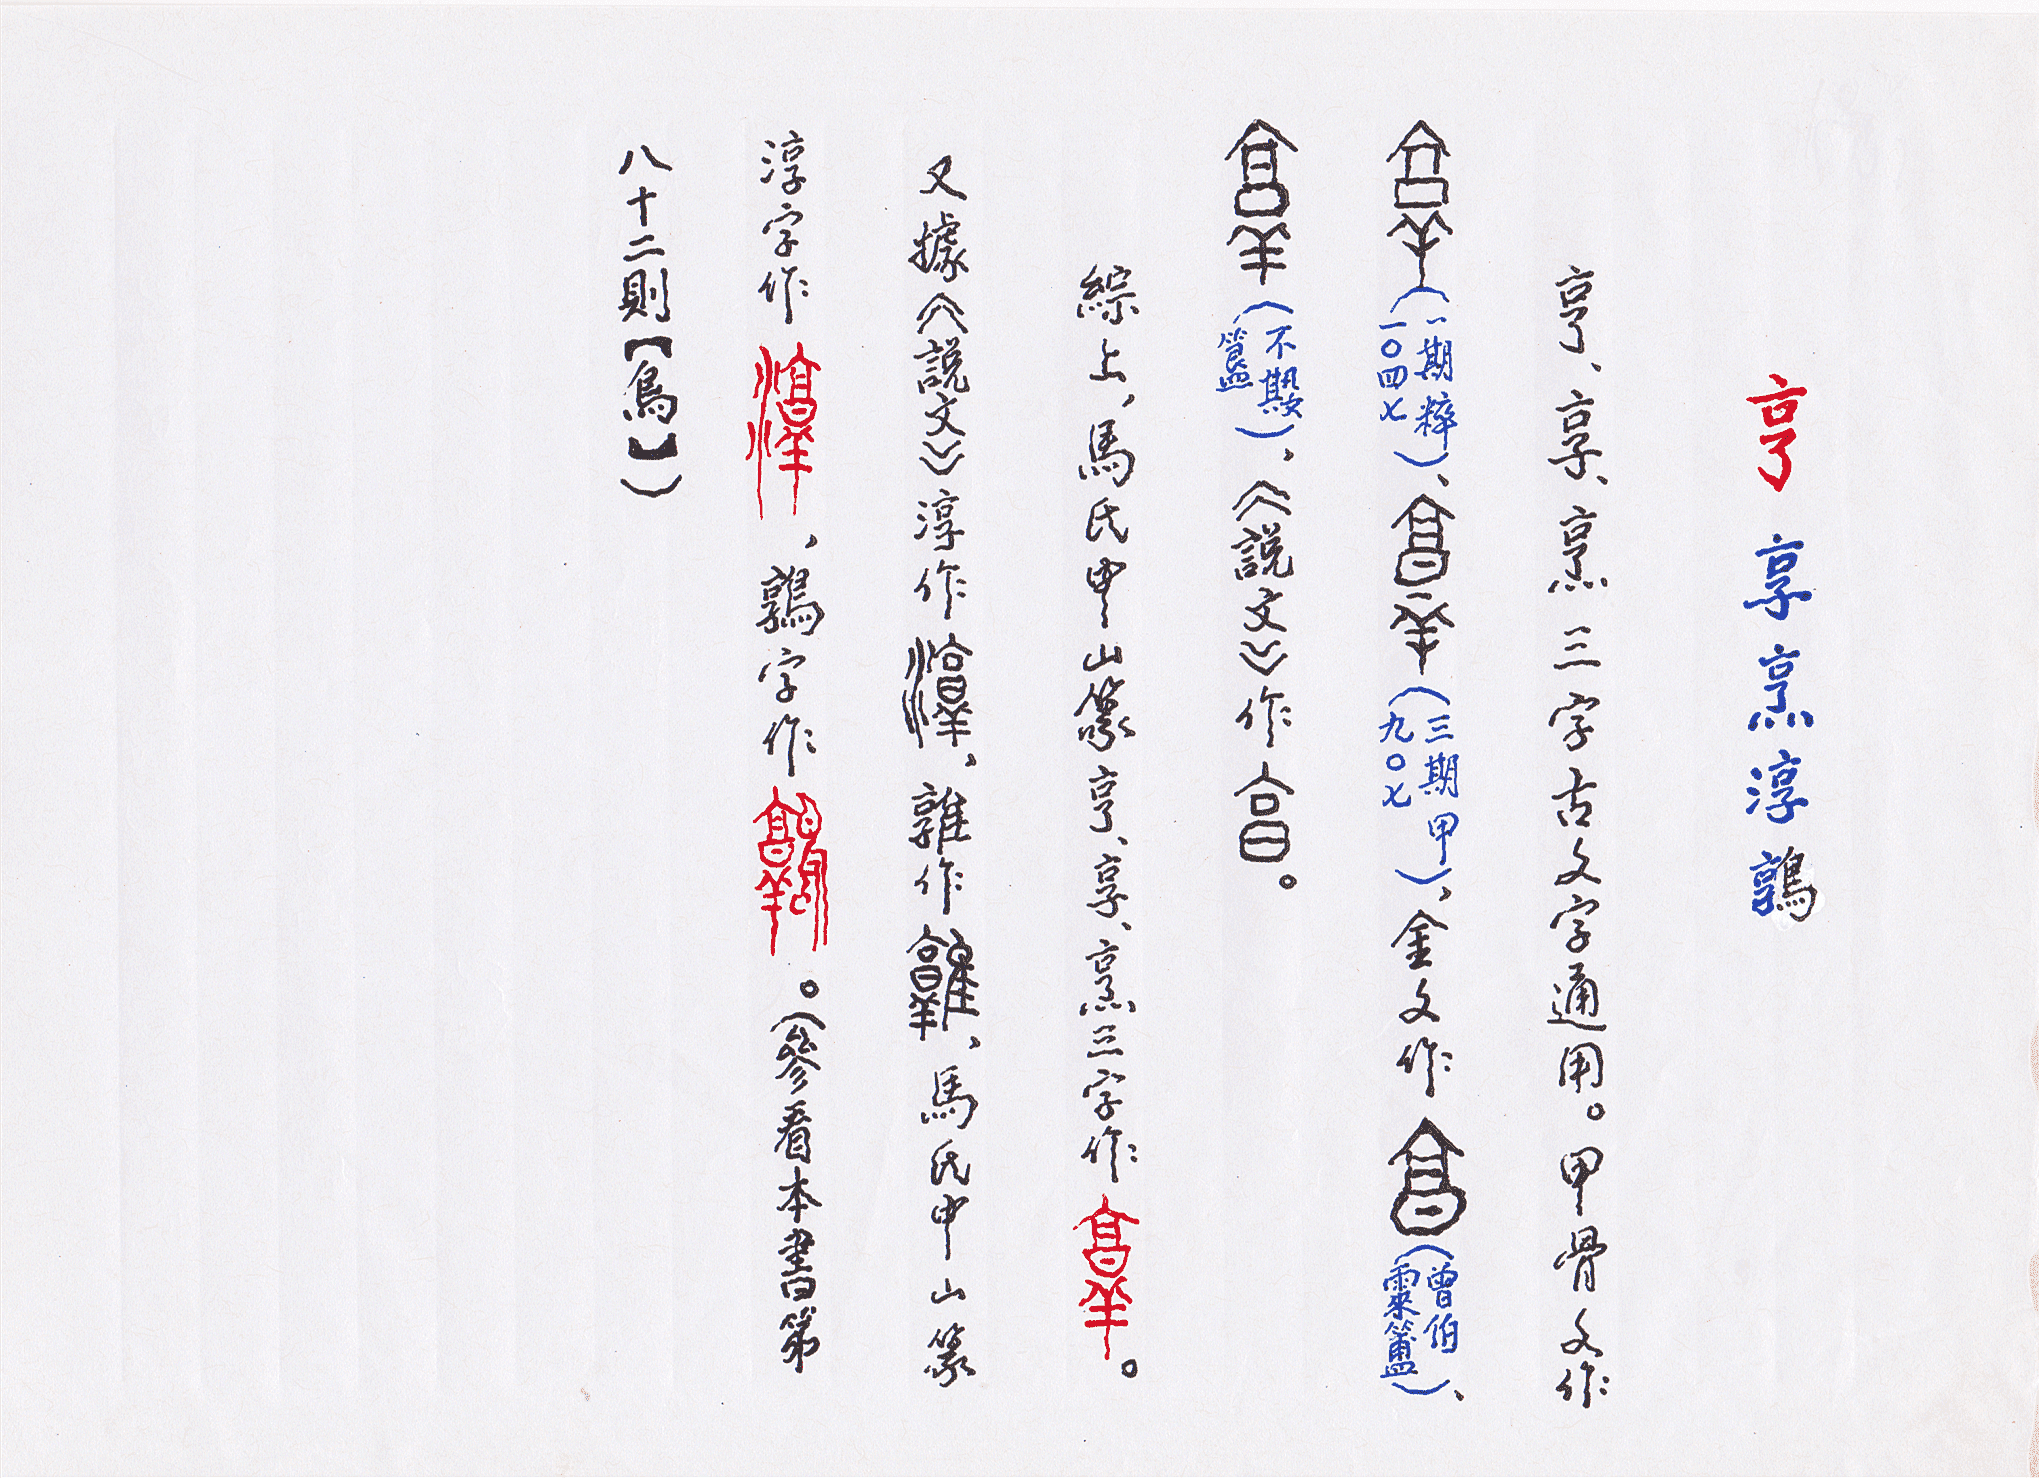 亨 享 烹 淳 鶉
亨、享、烹三字古文字通用。甲骨文作
(一期粹一〇四七)、(三期甲九〇七)、金文作(曾伯霥簠)、
(不𡢁簋)、《說文》作。
綜上,馬氏中山篆亨、享、烹三字作。
又據《說文》淳作、雜作、馬氏中山篆
淳字作、鶉字作。(參看本書第
八十二則【鳥】)